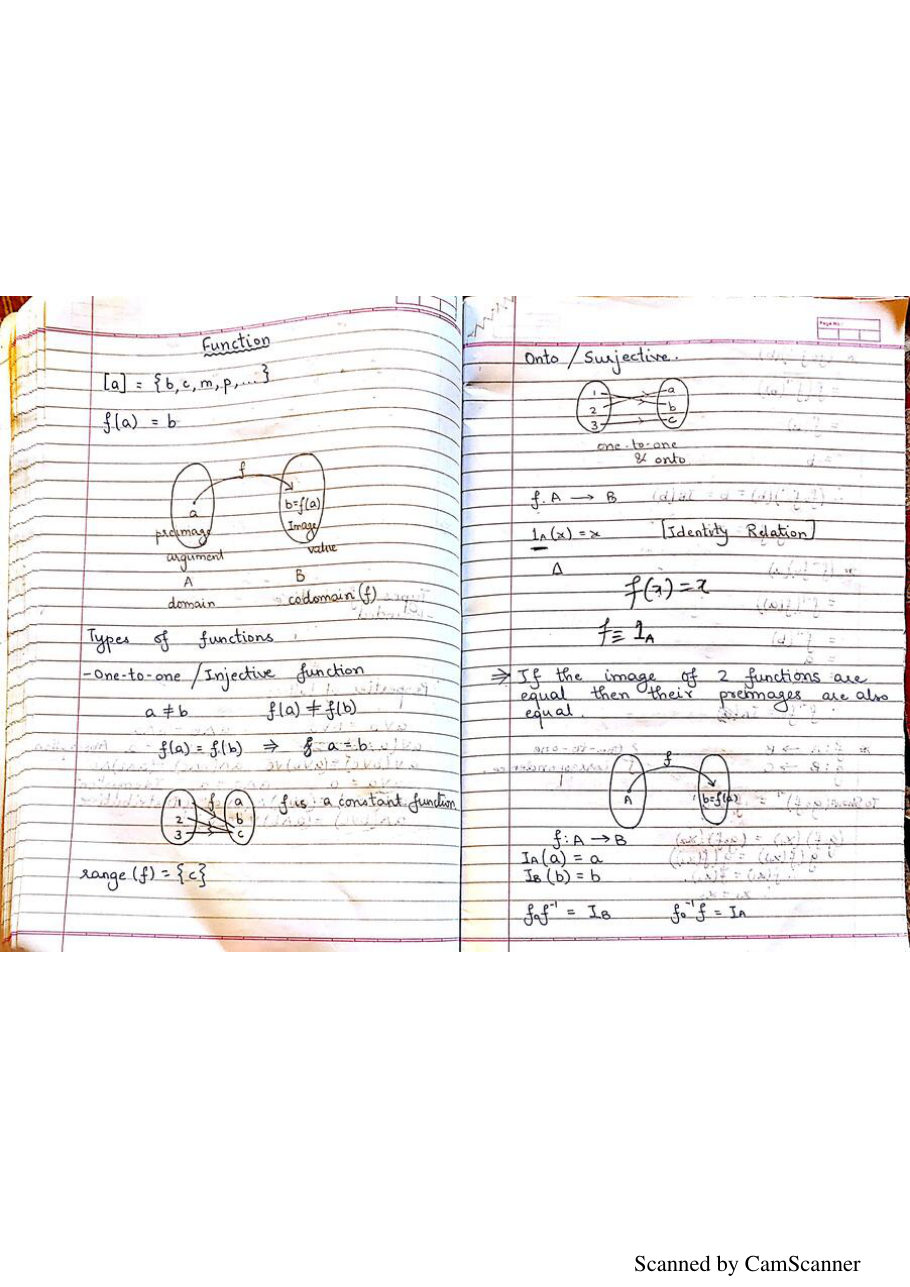 Function
[a] = {b, c, m, p, ...}
f(a) = b
f
a
b=f(a)
preimage
Image
argument
value
A
B
domain
codomain (f)
Types of functions
- One-to-one / Injective function
a ≠ b f(a) ≠ f(b)
f(a) = f(b) ⇒ a = b
1 f a
2 b
3 c
f is a constant function
range (f) = {c}
Page No.:
Onto / Surjective.
1 a
2 b
3 c
one-to-one
& onto
f: A → B
1A(x) = x [Identity Relation]
Δ
f(x) = x
f ≡ 1A
⇒ If the image of 2 functions are
equal then their preimages are also
equal.
f
A b=f(a)
f: A → B
IA(a) = a
IB(b) = b
fof⁻¹ = IB fo⁻¹f = IA
Scanned by CamScanner